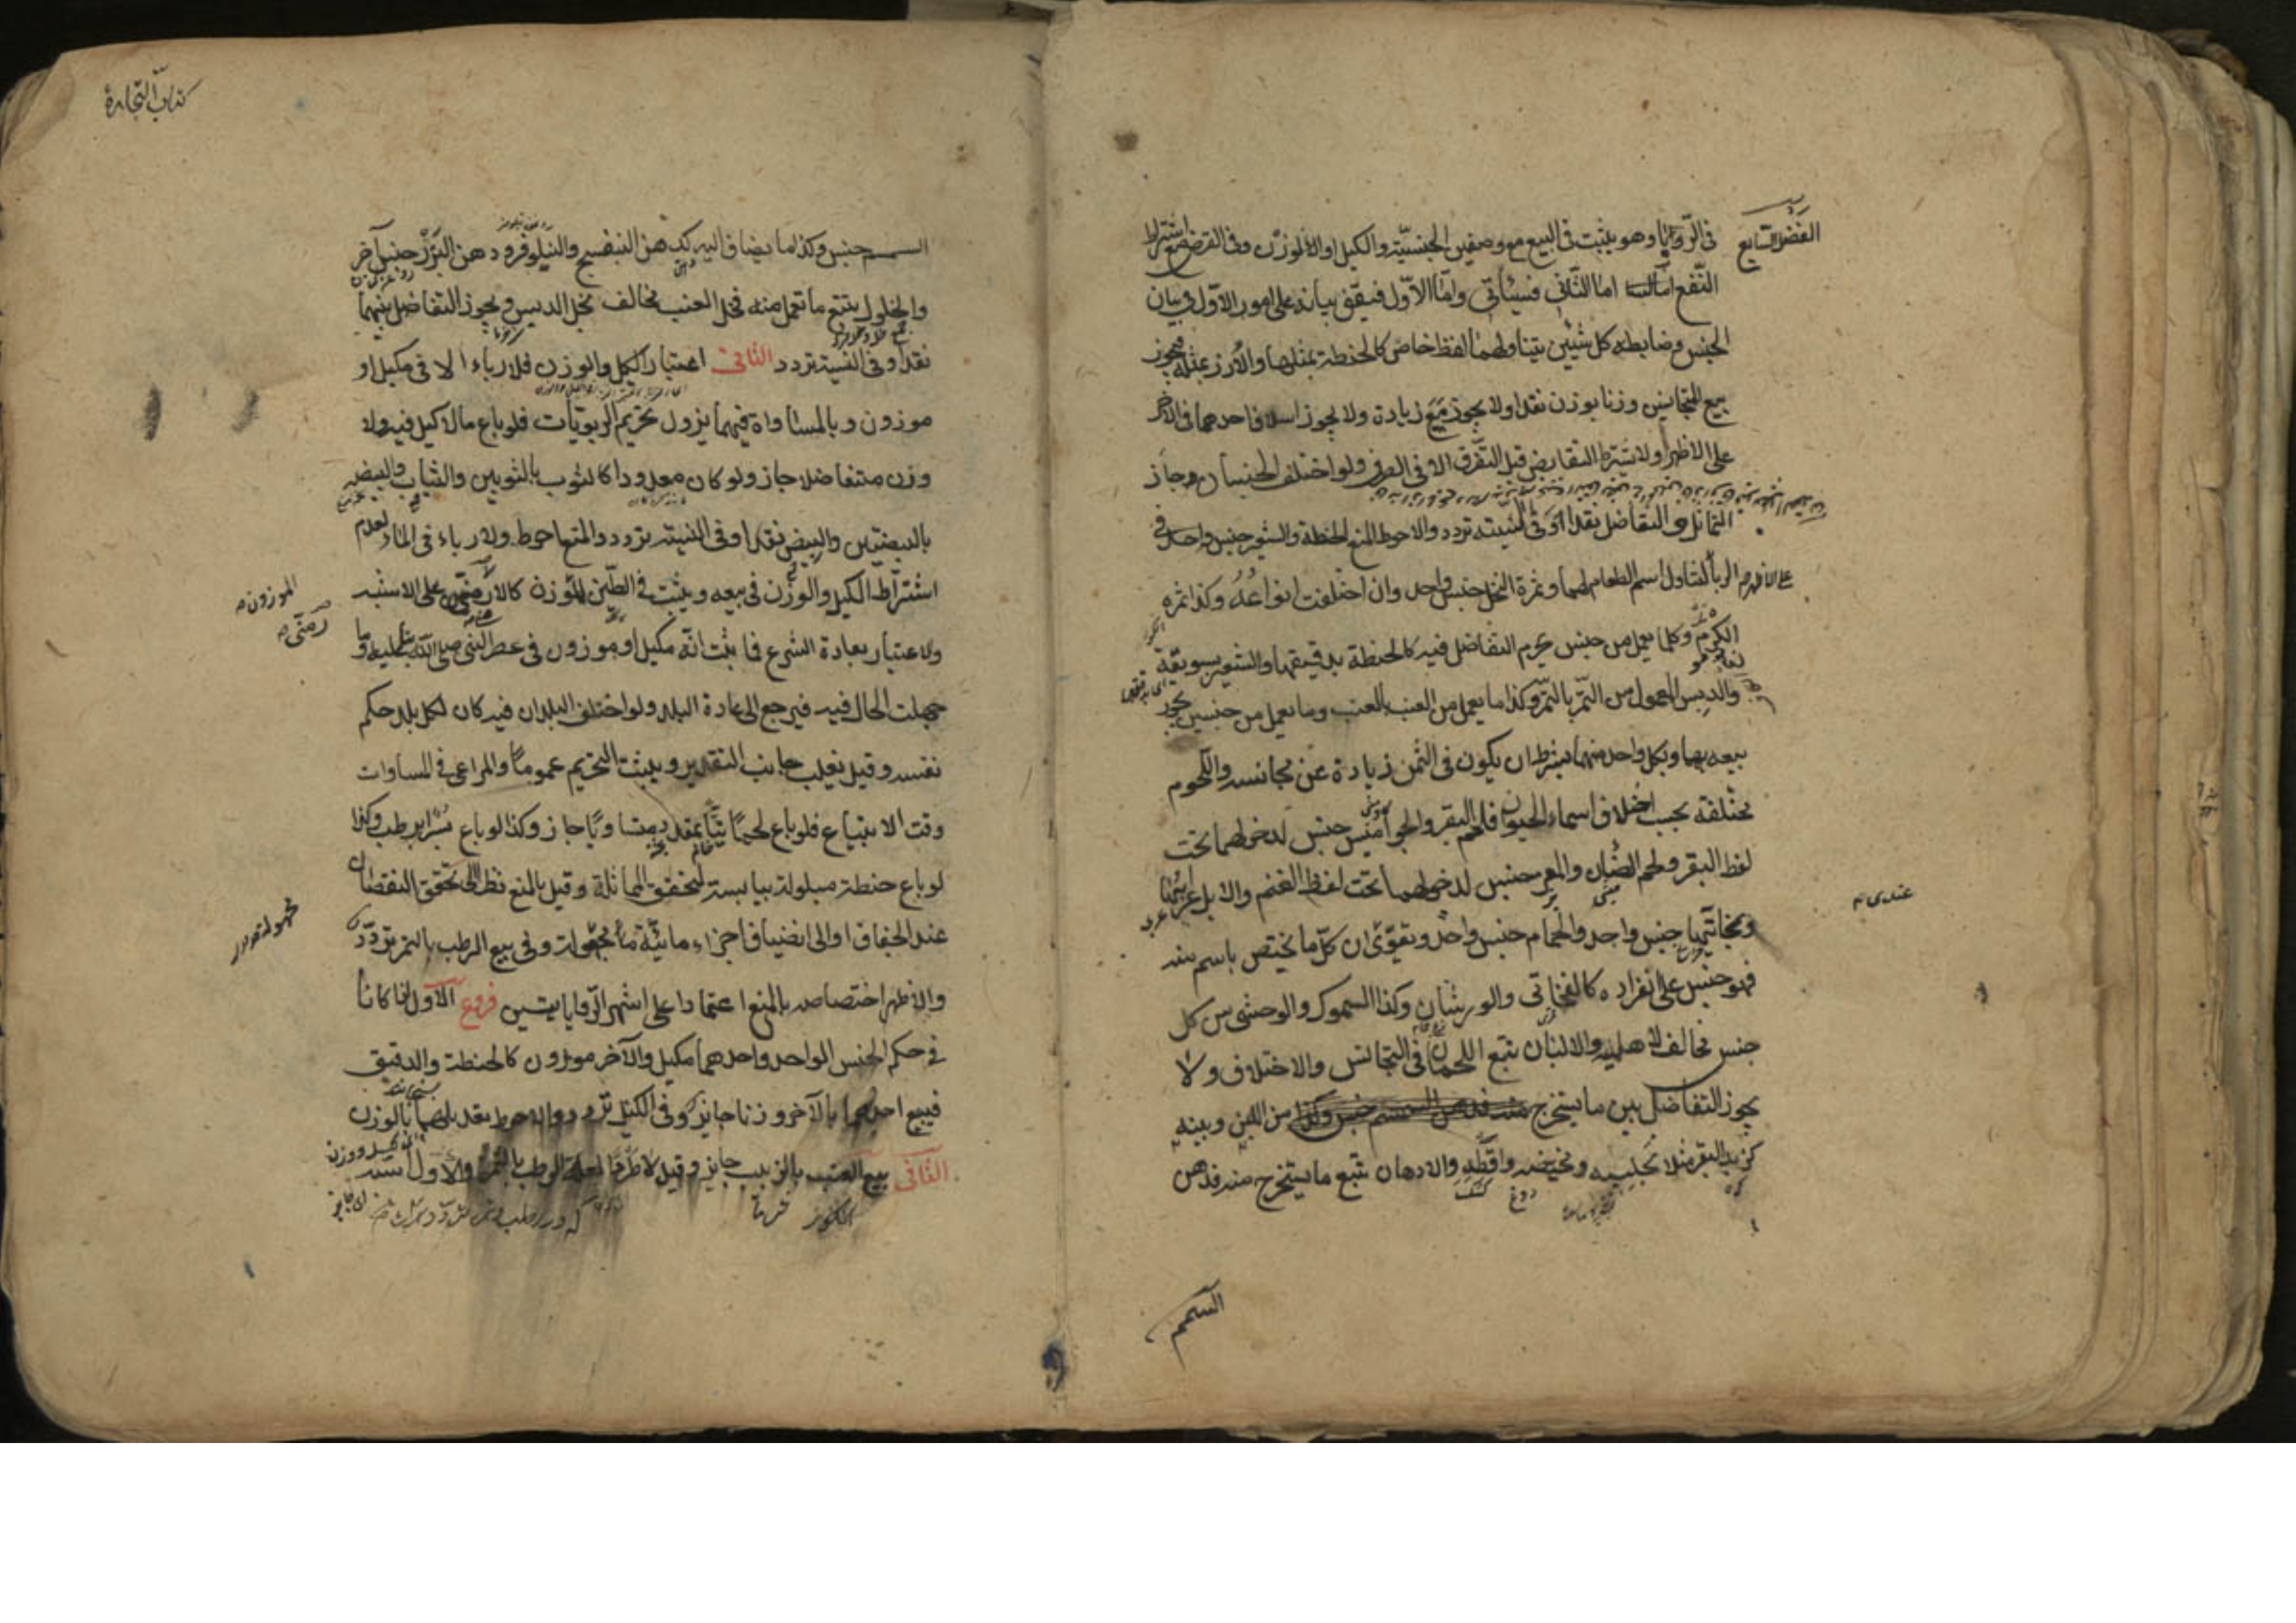 الفصل السابع
في الربا وهو يثبت في البيع مع وصفين الجنسية والكيل او الوزن وفي القرض مع اشتراط
النفع اما الثاني فسيأتي واما الاول فيقف بيانه على امور الاول في بيان
الجنس وضابطه كل شيئين يتناولهما لفظ خاص كالحنطة بمثلها والارز بمثله فيجوز
بيع المتجانس وزنا بوزن نقدا ولا يجوز مع زيادة ولا يجوز اسلاف احدهما في الآخر
على الاظهر ولا يشترط التقابض قبل التفرق الا في الصرف ولو اختلف الجنسان جاز
التماثل و التفاضل نقدا وفي النسيئة تردد والاحوط المنع والحنطة والشعير جنس واحد في
الربا
على الاظهر
لتناول اسم الطعام لهما وثمرة النخل جنس واحد وان اختلفت انواعه وكذا ثمرة
الكرم وكلما يعمل من جنس يحرم التفاضل فيه كالحنطة بدقيقها والشعير بسويقه
والدبس المعمول من التمر بالتمر وكذا ما يعمل من العنب بالعنب وما يعمل من جنسين يجوز
بيعه بهما وبكل واحد منهما بشرط ان يكون في الثمن زيادة عن مجانسه واللحوم
مختلفة بحسب اختلاف اسماء الحيوان فلحم البقر والجواميس جنس لدخولهما تحت
لفظ البقر ولحم الضان والمعز جنس لدخولهما تحت لفظ الغنم والابل عرابها
وبخاتيها جنس واحد والحمام جنس واحد ويقوى ان كل ما يختص باسم منه
عندى
فهو جنس على انفراده كالفخاتى والورشان وكذا السموك والوحشى من كل
جنس مخالف لاهليه والالبان تتبع اللحمان في التجانس والاختلاف ولا
يجوز التفاضل بين ما يستخرج من اللبن وبينه
كزبد البقر مثلا بحليبه ومخيضه واقطه والادهان تتبع ما يستخرج منه فدهن
السمسم
كتاب التجارة
السمسم جنس وكذا ما يضاف اليه كدهن البنفسج والنيلوفر ودهن البزر جنس آخر
والخلول يتبع ما تعمل منه فخل العنب مخالف لخل الدبس ويجوز التفاضل بينهما
نقدا وفي النسيئة تردد الثاني اعتبار الكيل والوزن فلا رباء الا في مكيل او
موزون وبالمساواة فيهما يزول تحريم الربويات فلو باع ما لا كيل فيه ولا
وزن متفاضلا جاز ولو كان معدودا كالثوب بالثوبين والثياب والبيضة
بالبيضتين والبيض نقدا وفي النسيئة تردد والمنع احوط ولا رباء في الماء لعدم
اشتراط الكيل والوزن في بيعه ويثبت في الطين الموزون كالارمنى على الاشبه
الموزون
رمنى
والاعتبار بعادة الشرع فما ثبت انه مكيل او موزون في عصر النبي صلى الله عليه وآله وما
جهلت الحال فيه فيرجع الى عادة البلد ولو اختلف البلدان فيه كان لكل بلد حكم
نفسه وقيل يغلب جانب التقدير ويثبت التحريم عموما والمراعى في المساوات
وقت الابتياع فلو باع لحما نيا بمقدد متساويا جاز وكذا لو باع بسرا برطب وكذا
لو باع حنطة مبلولة بيابسة لتحقق المماثلة وقيل بالمنع نظرا الى تحقق النقصان
عند الجفاف او الى انضياف اجزاء مائية مجهولة وفي بيع الرطب بالتمر تردد
والاظهر اختصاصه بالمنع اعتمادا على اشهر الروايتين فروع الاول اذا كانا
في حكم الجنس الواحد واحدهما مكيل والآخر موزون كالحنطة والدقيق
فبيع احدهما بالآخر وزنا جايز وفي الكيل تردد والاحوط تعديلهما بالوزن
الثاني بيع العنب بالزبيب جايز وقيل لا طردا لعلة الرطب بالتمر والاول اشبه